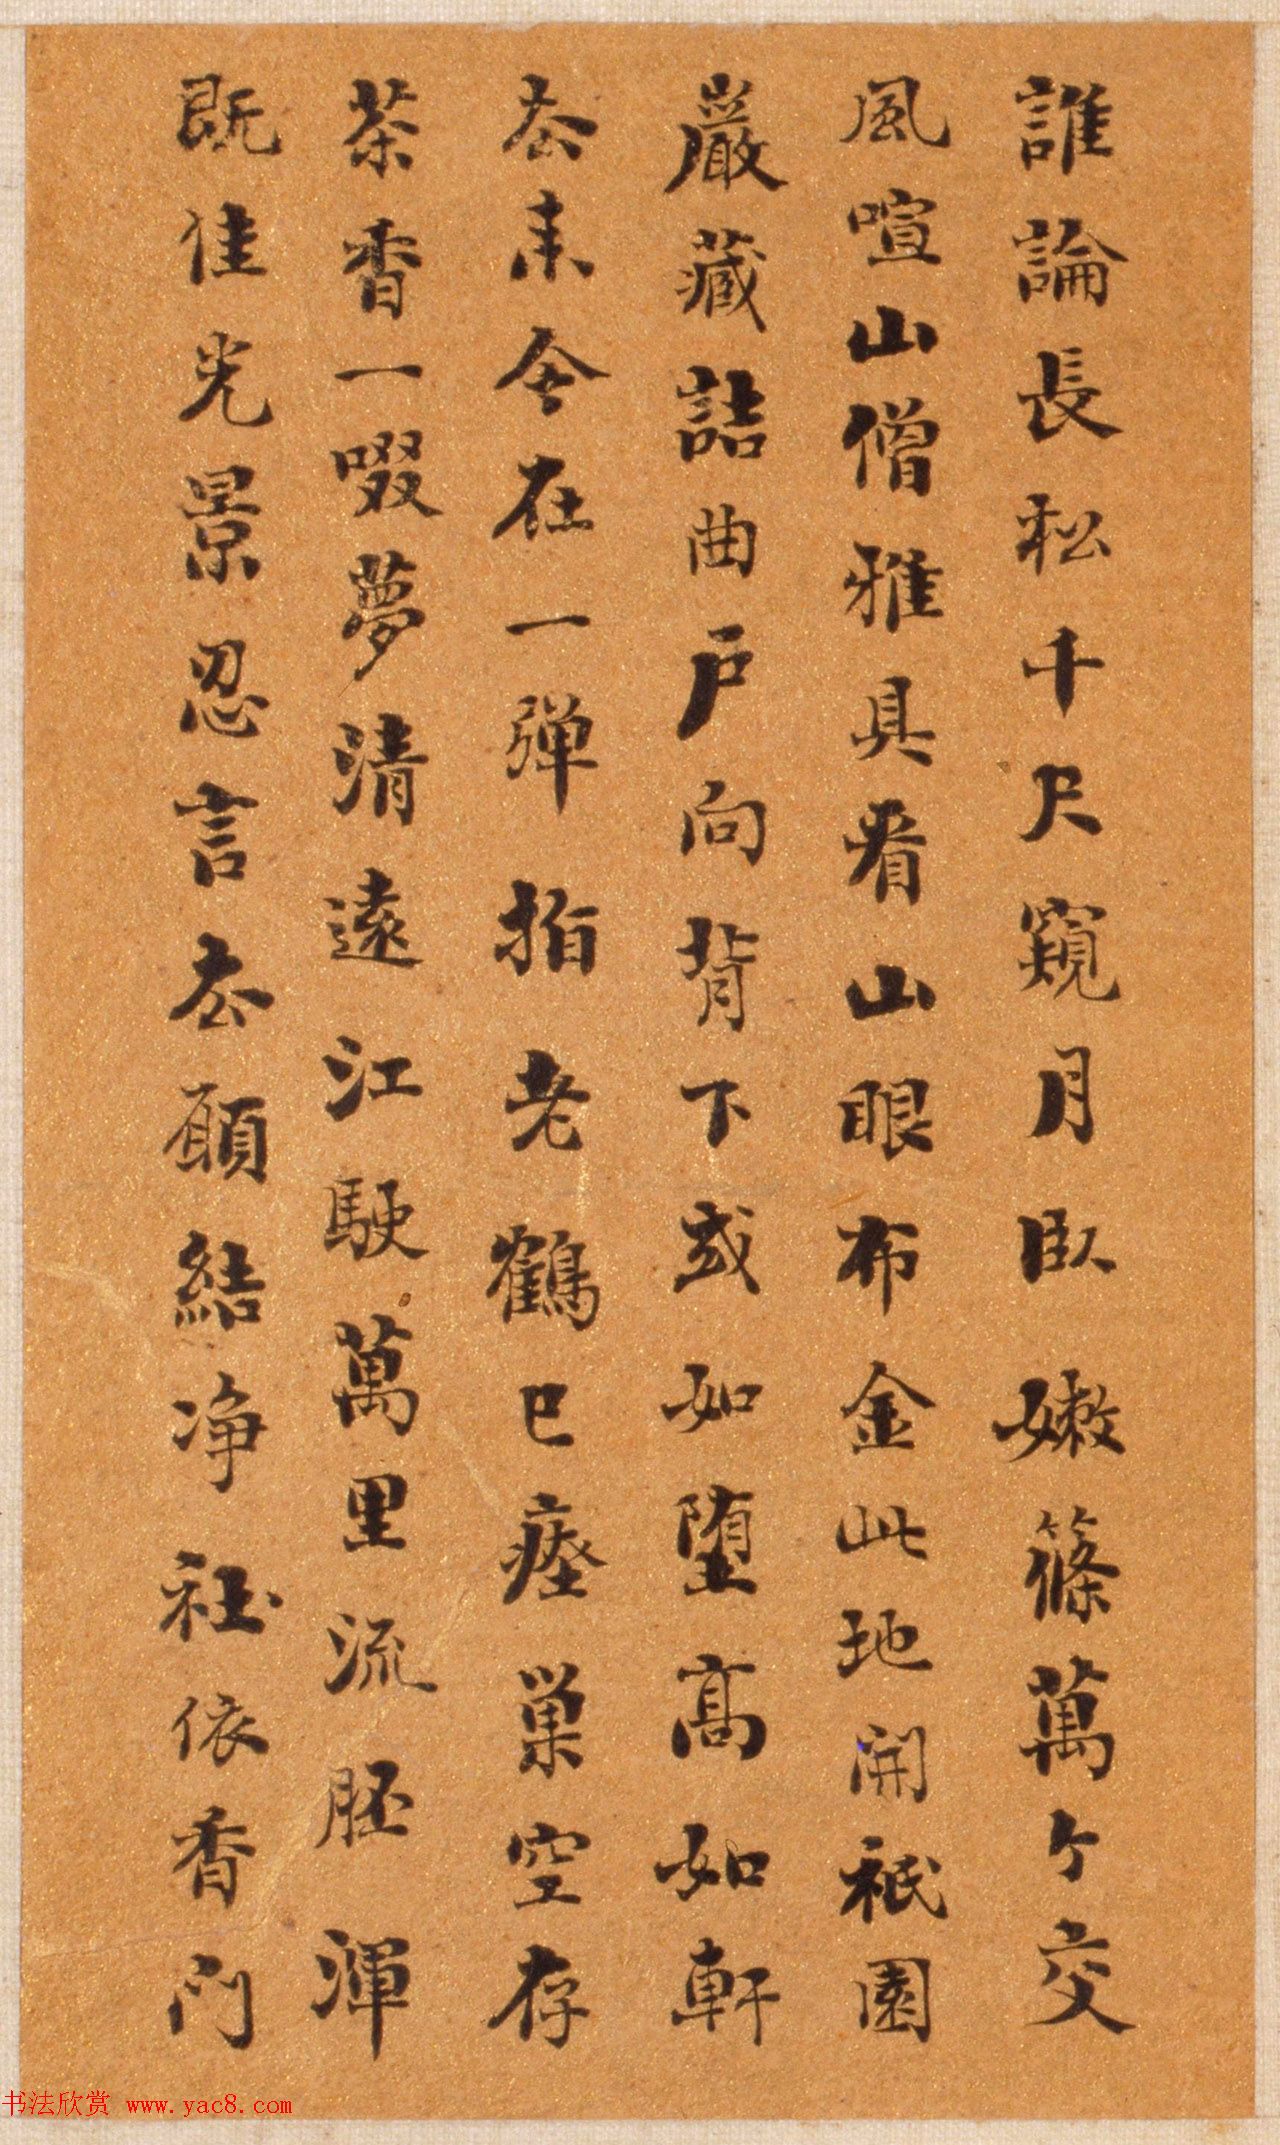 誰論長松千尺窺月臥嫩篠萬个交
風喧山僧雅具看山眼布金此地開祇園
巖藏詰曲戶向背下或如墮高如軒
去来今在一彈指老鶴已瘞巢空存
茶香一啜夢清遠江駛萬里流胚渾
既佳光景忍言去願結净社依香門
书法欣赏 www.yac8.com